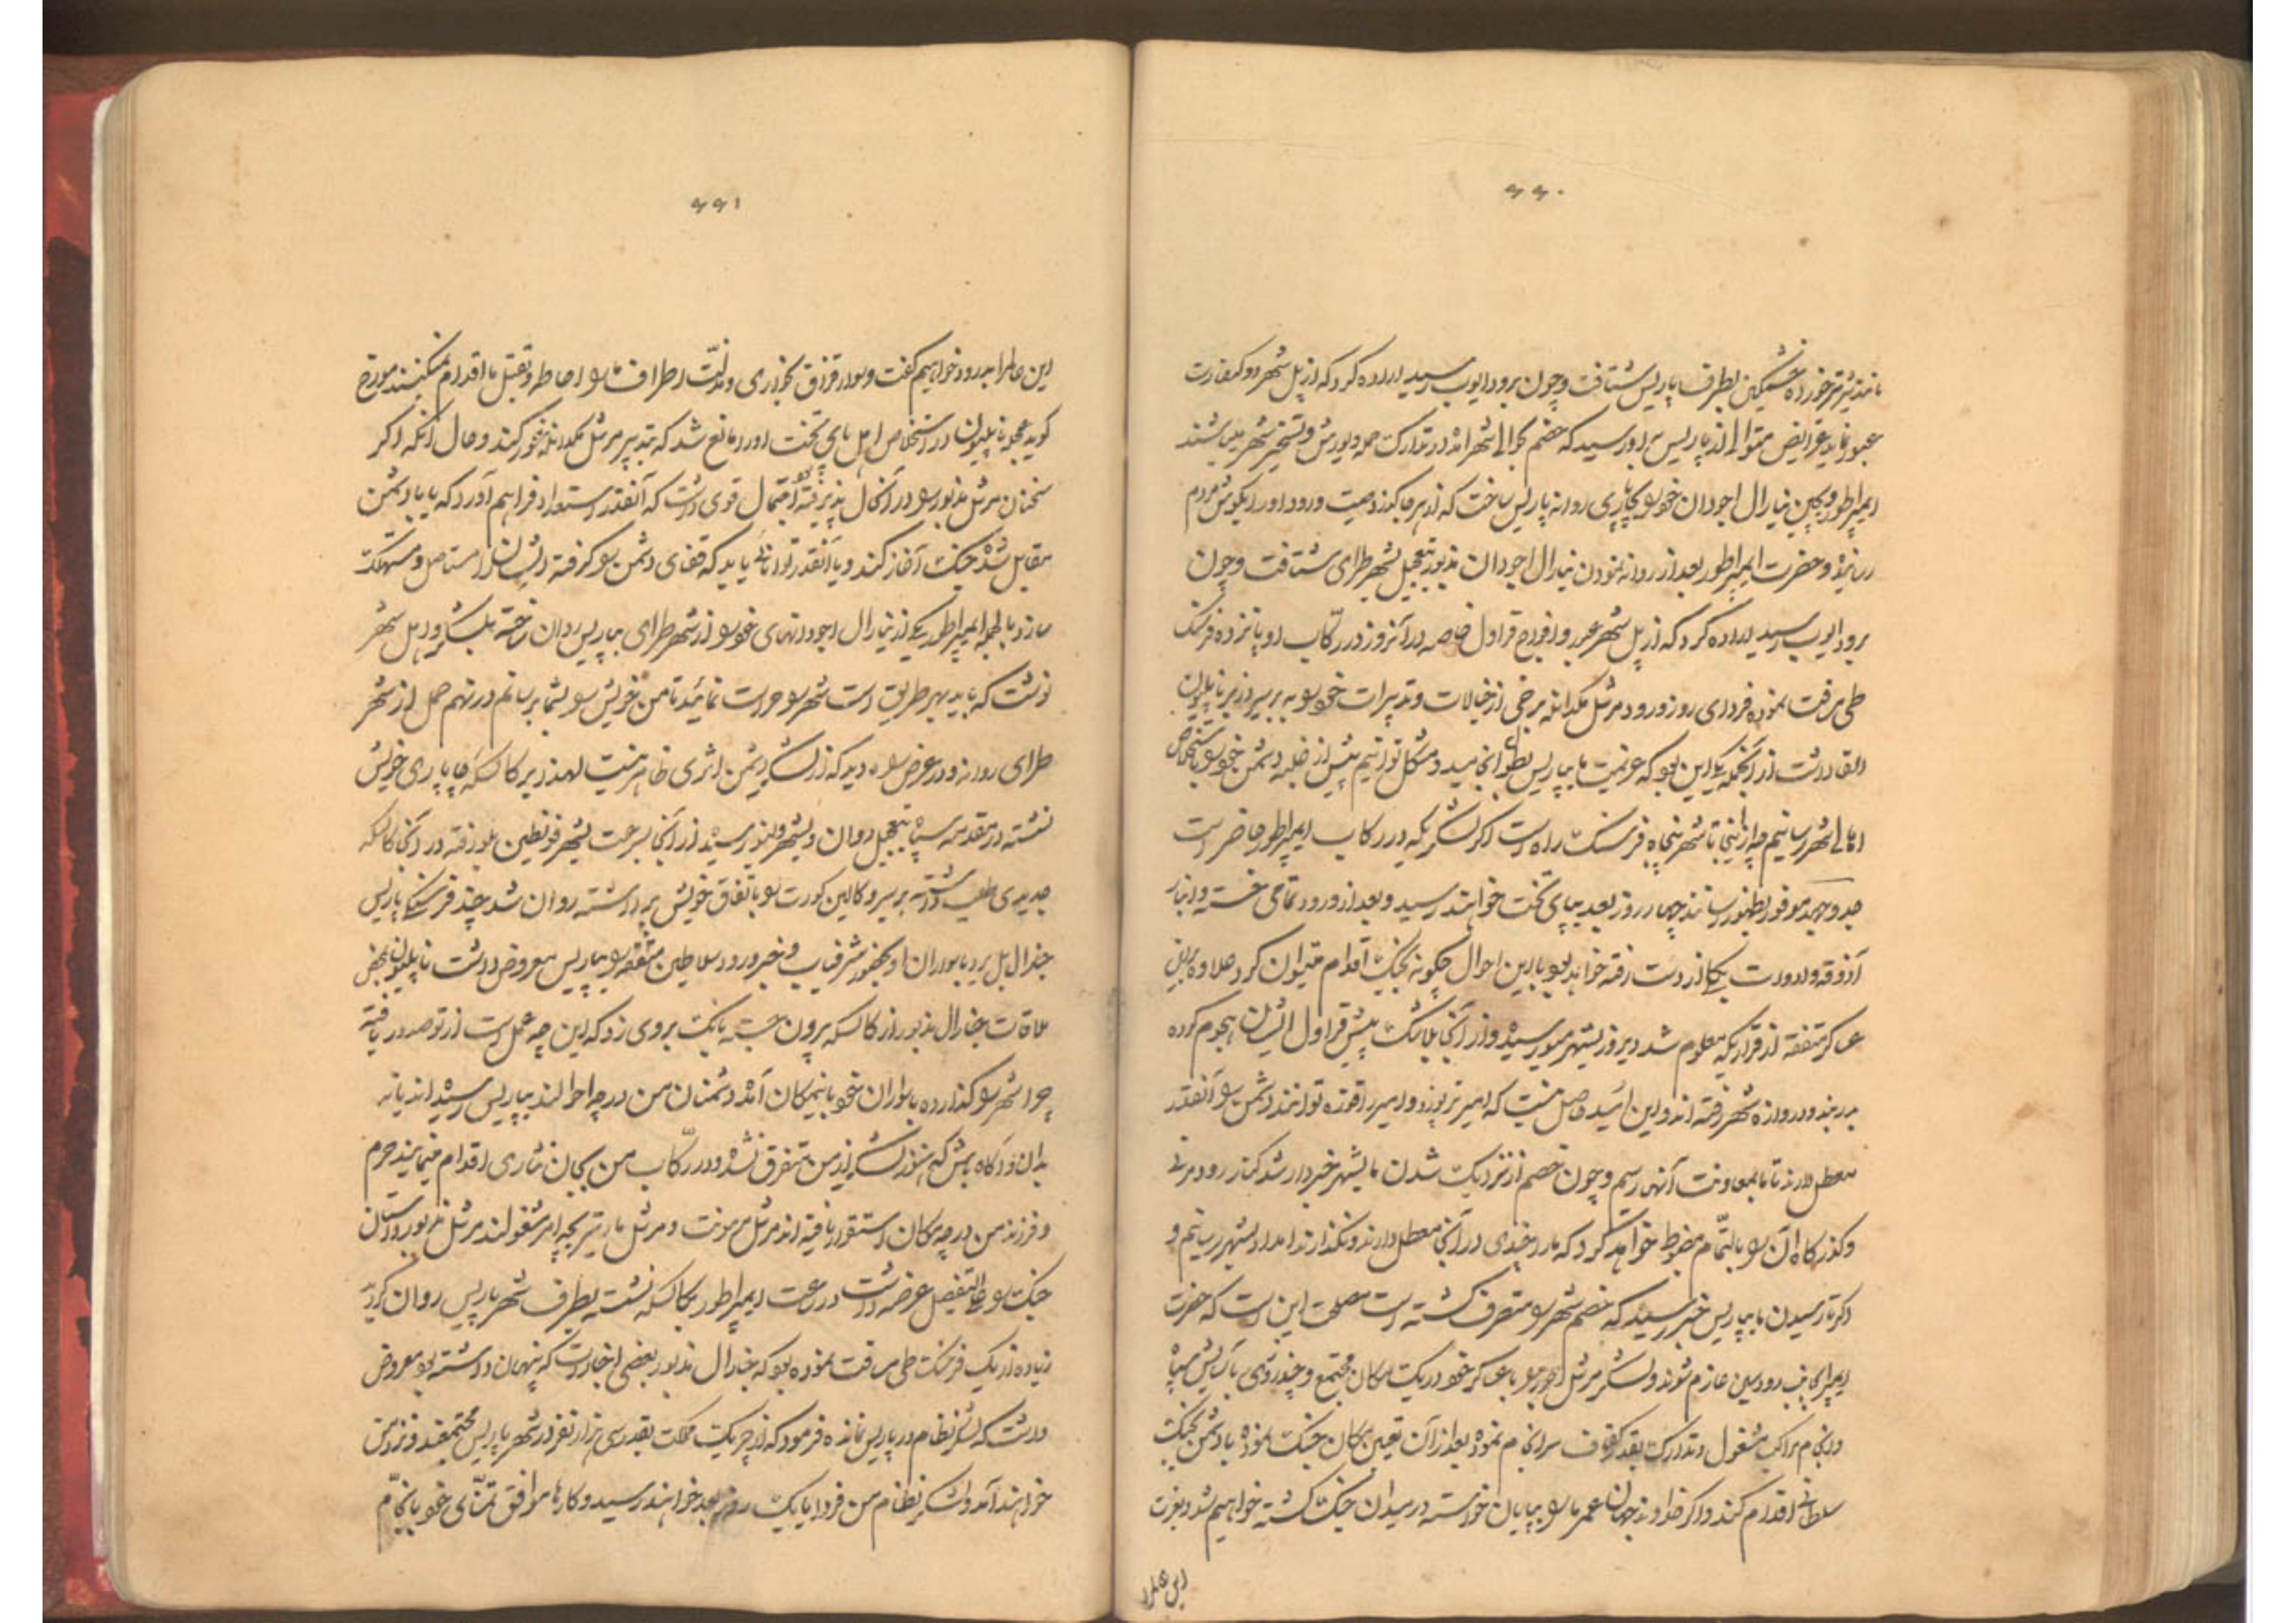 ۶۶۰
مانند شیر تیر خورده خشمگین بطرف پاریس شتافت و چون برود ایوب رسید اراده کرد که از پل شهر دو کیفارت
عبور نماید عرایض متوالی از پاریس باو رسید که خصم بحوالی شهر آمده در تدارک حمله و یورش و تسخیر شهر میباشند
ایمپراطور و یکی از جنرال اجودان خود بچاپاری روانه پاریس ساخت که از هر جا بگذرد صیت ورود او را بگوش مردم
رسانیده و حضرت ایمپراطور بعد از روانه نمودن جنرال اجودان مذبور بتعجیل بشهر طرای شتافت و چون
برود ایوب رسید اراده کرد که از پل شهر عبور و افواج قراول خاصه در آنروز در رکاب او پانزده فرسنگ
طی مسافت نموده فردای روز ورود مرشل مکدانله برخی از خیالات و تدبیرات خود به برسیر وزیر ناپلیون
القا داشت از آنجمله یکی این بود که عزیمت ما بپاریس بطول انجامید و مشکل توانیم پیش از غلبه دشمن خود باستخلاص
اهالی شهر رسانیم چه از اینجا تا شهر پنجاه فرسنگ راه است اگر لشکریکه در رکاب ایمپراطور حاضر است
جد و جهد موفور بظهور رسانند چهار روز بعد بپای تخت خواهند رسید و بعد از ورود تمامی خسته و انبار
آذوقه و ادوات یکجا از دست رفته خواهد بود با این احوال چگونه بجنگ اقدام میتوان کرد علاوه براین
عساکر متفقه از قراریکه معلوم شد دیروز بشهر میور رسیده و از آنجا بلاشک پیش قراول ایشان هجوم کرده
بدربند و دروازه شهر رفته اند و این امید حاصل نیست که امیر تریوزه و امیر راقوزه توانند دشمن را آنقدر
معطل دارند تا ما بمعاونت آنها رسیم و چون خصم از نزدیک شدن ما بشهر خبردار شد کنار رود مرنی
و گذرگاه آن را بالتمام مضبوط خواهد کرد که ما را چندی در آنجا معطل دارند و نگذارند امداد بشهر رسانیم و
اگر تا رسیدن ما بپاریس خبر رسید که خصم شهر را متصرف گشته است مصلحت این است که حضرت
ایمپراطور بجانب رود سین عازم شوند و لشکر مرشل اجرو را با عساکر خود در یک مکان مجتمع و چند روزی بآسایش سپاه
و انجام مراکب مشغول و تدارک بقدر کفاف سرانجام نموده بعد از آن تعیین مکان جنگ نموده با دشمن بجنگ
سلطانی اقدام کند و اگر خداوند جهان عمر ما را بپایان خواسته در میدان جنگ کشته خواهیم شد و بعزت
این عالم را
۶۶۱
این عالم را بدرود خواهیم گفت و سوار قزاق بخواری و مذلت از اطراف ما را احاطه و بقتل ما اقدام نمیکنند مورخ
گوید عجب ناپلیون در استخلاص اهل پای تخت او را مانع شد که بتدبیر مرشل مکدانله غور کند و حال آنکه اگر
سخنان مرشل مذبور را در آنحال پذیرفته بود احتمال قوی داشت که آنقدر استعداد فراهم آورد که یا با دشمن
مقابل شده جنگ آغاز کند و یا آنقدر توانائی یابد که قفای دشمن را گرفته ایشان را مستاصل و مستهلک
سازد بالجمله ایمپراطور یکی از جنرال اجودانهای خود را از شهر طرای بپاریس روان ساخته بلشکر و اهل شهر
نوشت که باید بهر طریق است شهر را حراست نمائید تا من خویش را بشما برسانم در نهم حمل از شهر
طرای روانه و در عرض راه دید که از لشکر دشمن اثری ظاهر نیست لهذا بر کالسکه چاپاری خویش
نشسته در مقدمه سپاه بتعجیل روان و بشهر ولنو رسیده از آنجا بسرعت بشهر فونطین بلو رفته در آنجا کالسکه
جدیدی طلب داشته برسیر و کالین کورت را باتفاق خویش برداشته روان شد چند فرسنگی پاریس
جنرال بل یرد با سواران او بحضور شرفیاب و خبر ورود سلاطین متفقه را بپاریس معروض داشت ناپلیون بمحض
ملاقات جنرال مذبور از کالسکه بیرون جسته بانگ بر وی زد که این چه عمل است از تو صدور یافته
چرا شهر را گذارده با سواران خود باینمکان آمده دشمنان من در چه احوالند بپاریس رسیده اند یا نه
بدان و آگاه باش که هنوز لشکر از من متفرق نشده و در رکاب من بجان نثاری اقدام مینمایند حرم
و فرزند من در چه مکان استقرار یافته اند مرشل مرمونت و مرشل مارتیر بچه امر مشغولند مرشل مذبور داستان
جنگ را علی التفصیل عرضه داشت در ساعت ایمپراطور بکالسکه نشسته بطرف شهر پاریس روان گردید
زیاده از یک فرسنگ طی مسافت نموده بود که جنرال مذبور بعضی اخبارات که پنهان داشته بود معروض
داشت که لشکر نظام در پاریس نمانده فرمود که از چریک مملکت بقدر سی هزار نفر در شهر پاریس مجتمعند و نزد من
خواهند آمد و لشکر نظام من فردا یا یک روز بعد خواهند رسید و کارها موافق تمنّای خود بانجام